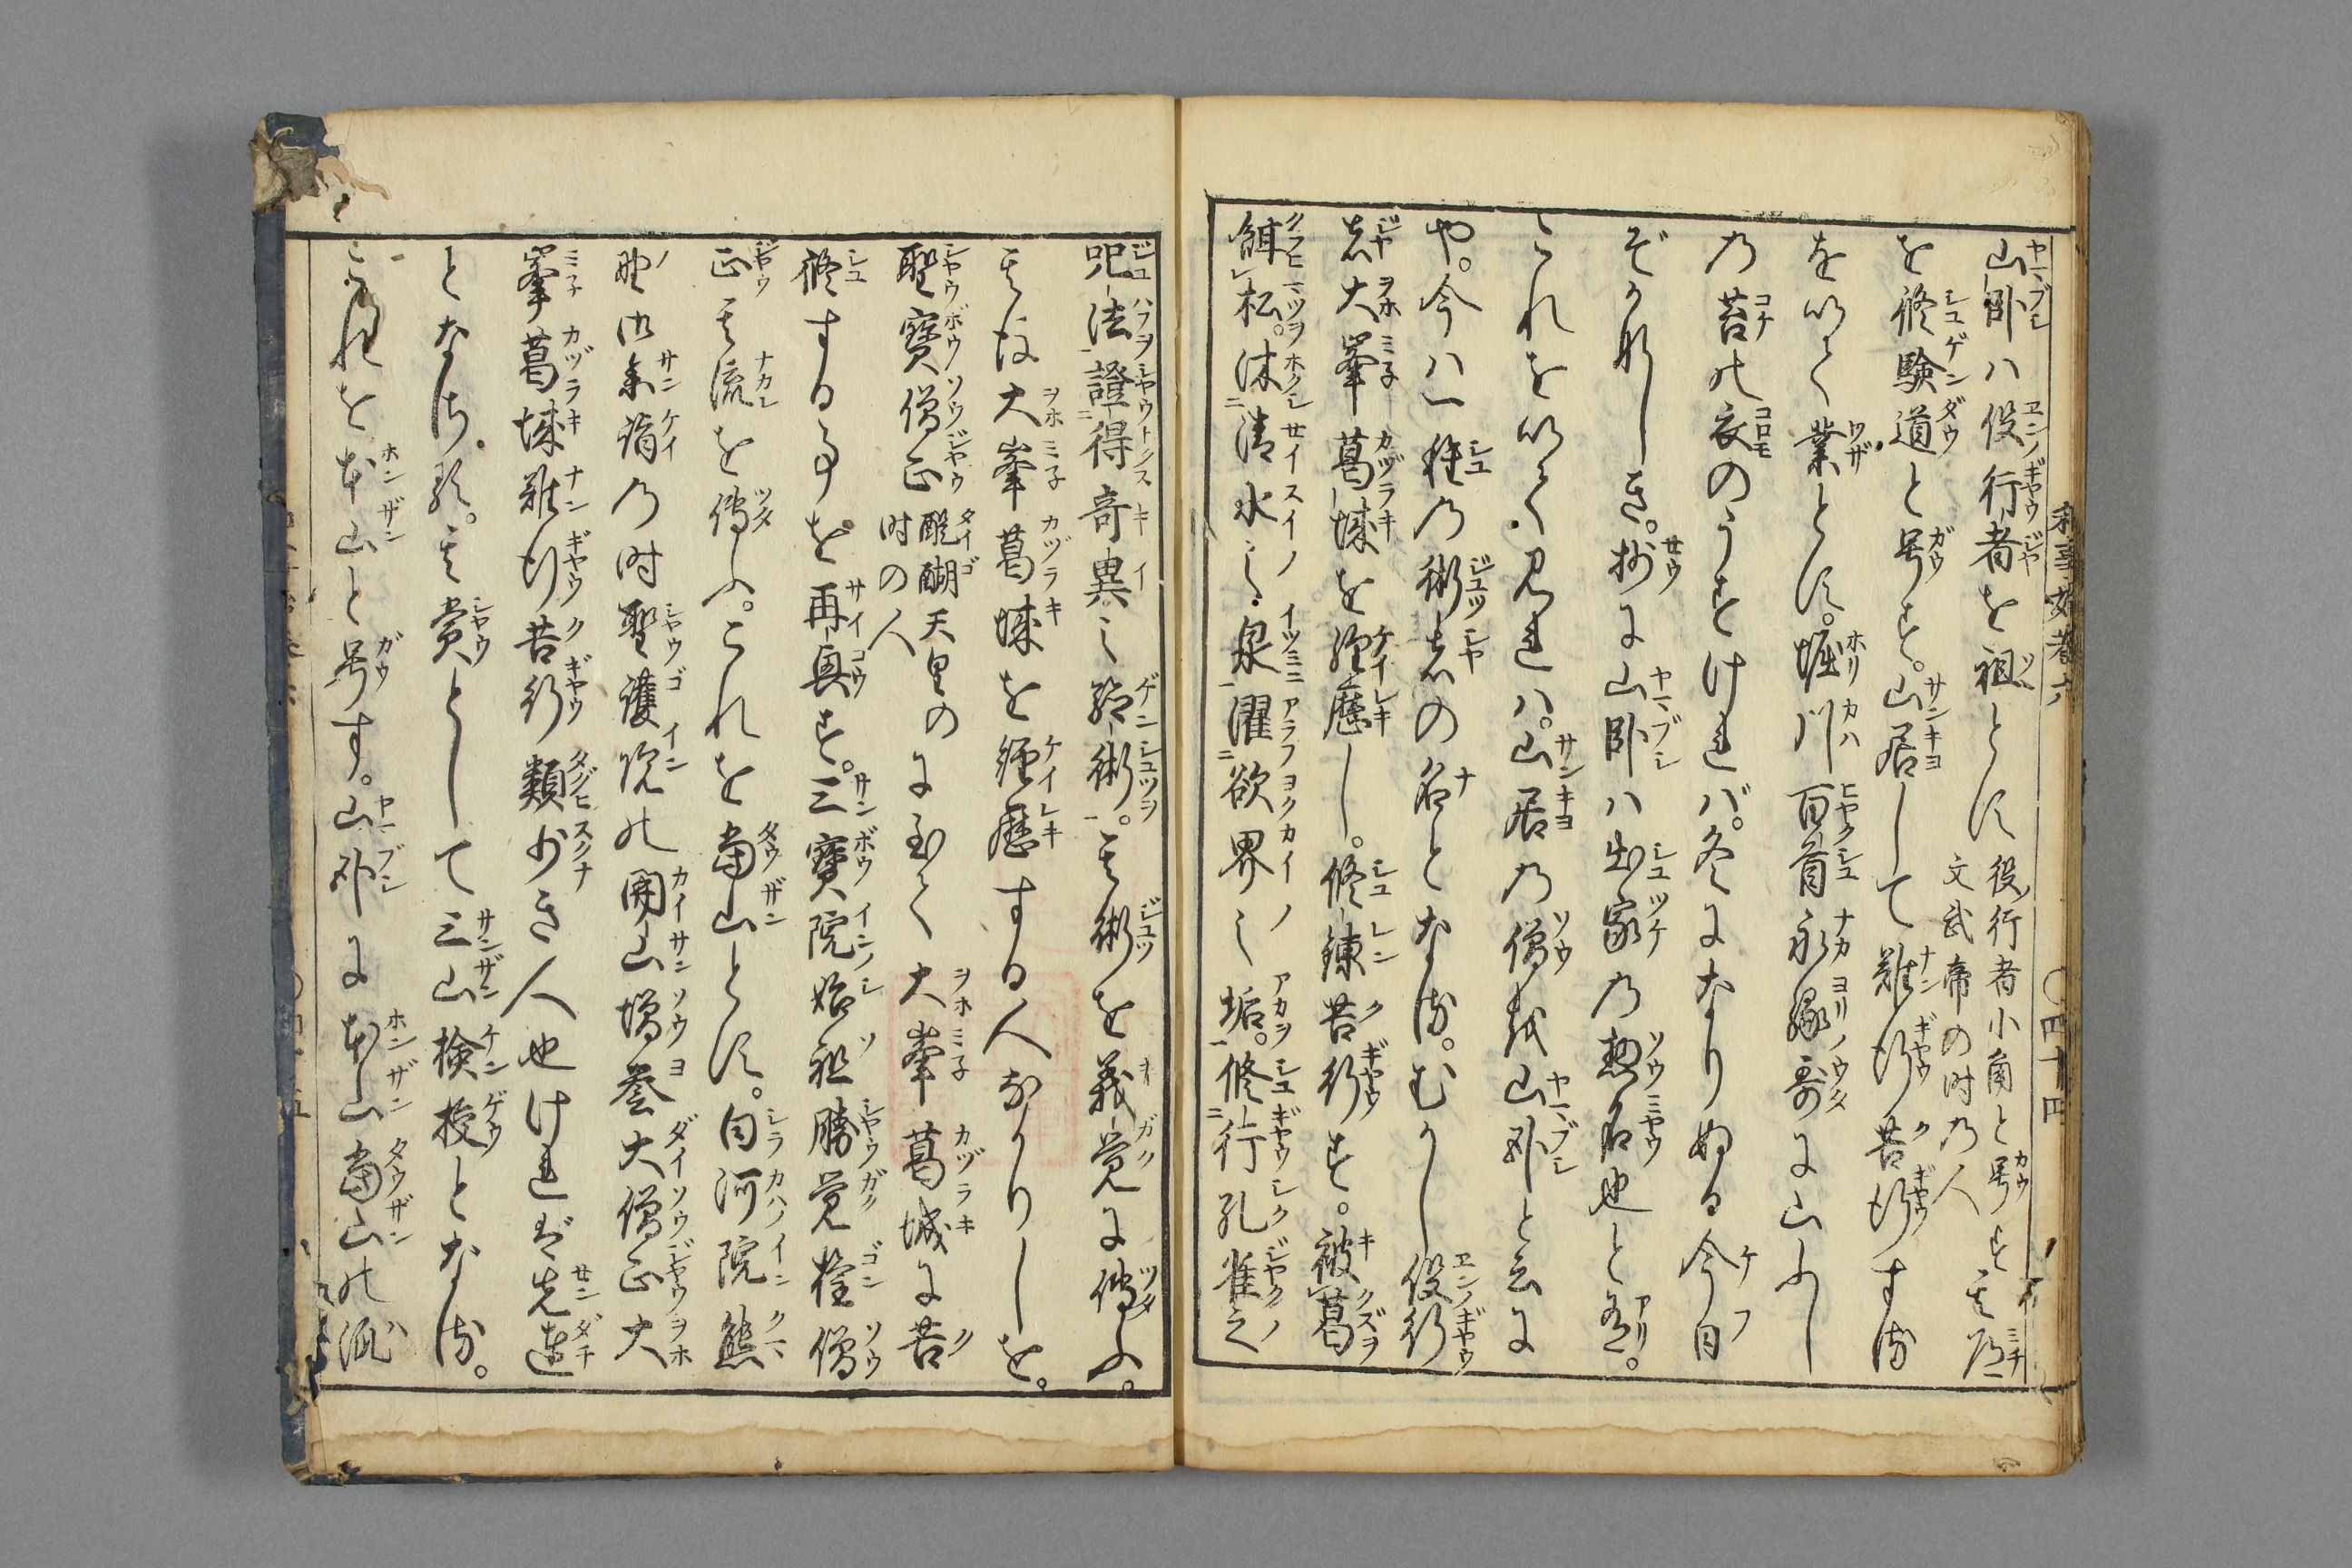 山臥ハ役行者を祖とす 役行者小角と号す 文武帝の時の人 其道
を修験道と号す。山居して難行苦行する
を以て業とす。堀川百首永縁哥に山ふし
の苔の衣のうすけれバ。冬になりぬる今日
ぞかなしき。抄に山臥ハ出家の惣名也と有。
これを以て見れハ。山居の僧を山卧と云に
や。今ハ一種の術者の名となる。むかし役行
者大峯葛城を経歴し。修錬苦行す。被葛
餌松。沐清水之泉濯欲界之垢。修行孔雀之
呪法證得奇異之驗術。其術を義覚に傳ふ。
其後大峯葛城を経歴する人なかりしを。
聖寳僧正 醍醐天皇の時の人 に至て大峯葛城に苦
修する事を再興す。三寳院始祖勝覚権僧
正其流を傳ふ。これを當山とす。白河院熊
野御参詣の時聖護院の開山増誉大僧正大
峯葛城難行苦行類少き人也けれは先達
となられ。其賞として三山検校となる。
これを本山と号す。山卧に本山當山の派